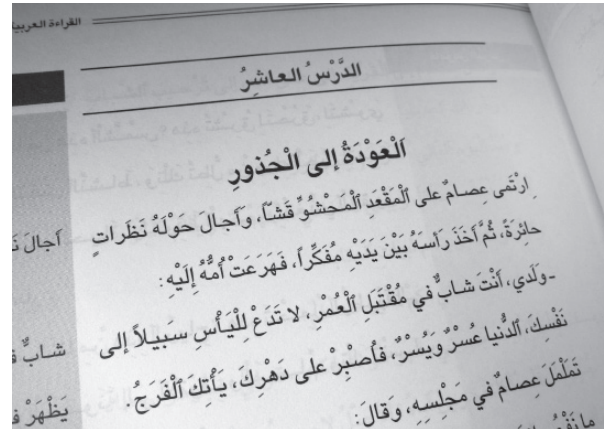 القراءة العربية
الدَّرْسُ العاشِرُ
اَلْعَوْدَةُ إلى الْجُذورِ
اِرْتَمى عِصامٌ على الْمَقْعَدِ الْمَحْشُوِّ قَشّاً، وَأَجالَ حَوْلَهُ نَظَراتٍ
حائِرَةً، ثُمَّ أَخَذَ رَأسَهُ بَيْنَ يَدَيْهِ مُفَكِّراً، فَهَرَعَتْ أُمُّهُ إِلَيْهِ:
-وَلَدي، أَنْتَ شابٌّ في مُقْتَبَلِ الْعُمْرِ، لا تَدَعْ لِلْيَأْسِ سبيلاً إلى
نَفْسِكَ، اَلدُّنيا عُسْرٌ وَيُسْرٌ، فَاصْبِرْ على دَهْرِكَ، يَأْتِكَ الْفَرَجُ.
تَمَلْمَلَ عِصامٌ في مَجْلِسِهِ، وَقالَ:
أَجالَ
شابٌّ
يَظْهَرْ